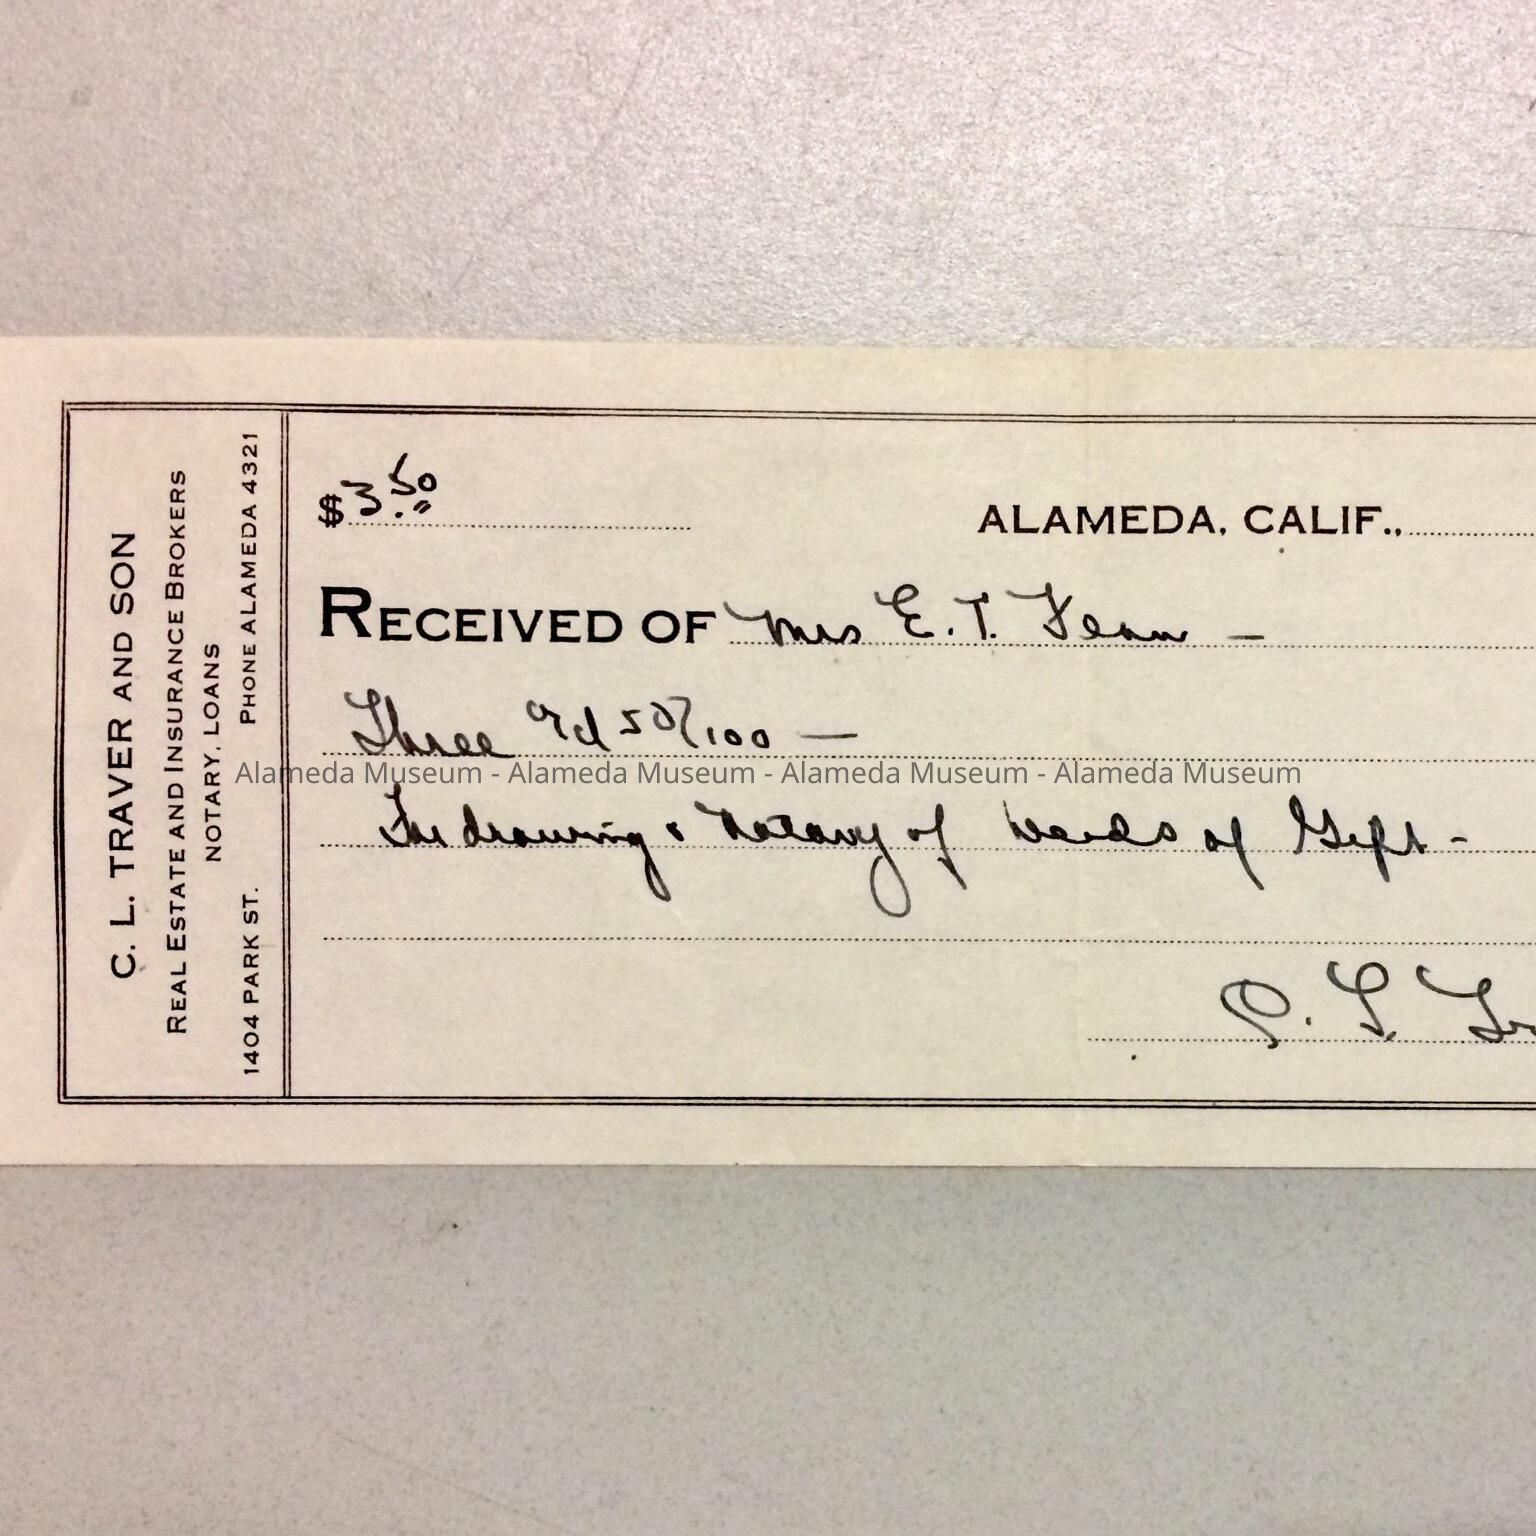 C. L. TRAVER AND SON
REAL ESTATE AND INSURANCE BROKERS
NOTARY, LOANS
1404 PARK ST. PHONE ALAMEDA 4321
$3.50
ALAMEDA, CALIF.,
RECEIVED OF Mrs E. T.
Three 50/100 —
Alameda Museum - Alameda Museum - Alameda Museum - Alameda Museum
For drawing & Notary of Deeds of Gift -
C. L. Tr